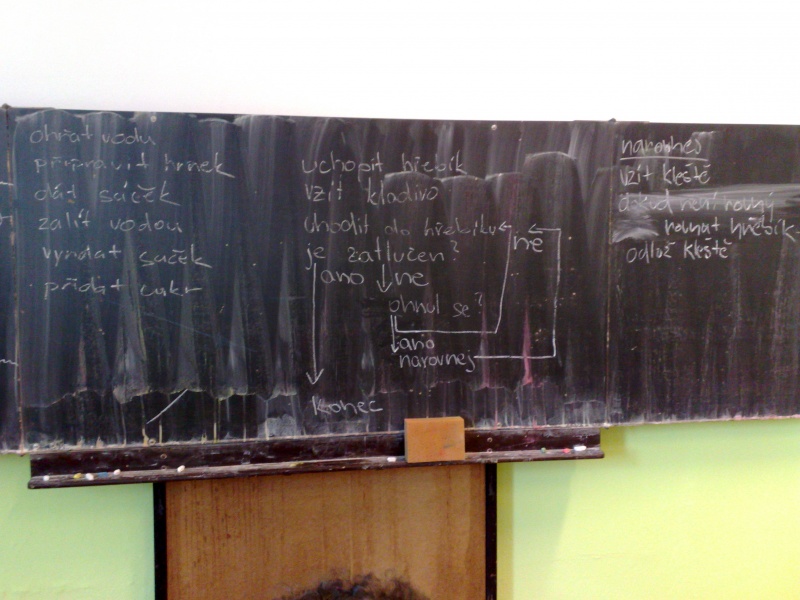 ohřát vodu
připravit hrnek
dát sáček
zalít vodou
vyndat sáček
přidat cukr
uchopit hřebík
vzít kladivo
uhodit do hřebíku
je zatlučen?
ano
ne
ohnul se?
ne
ano
narovnej
konec
narovnej
vzít kleště
dokud není rovný
rovnat hřebík
odlož kleště